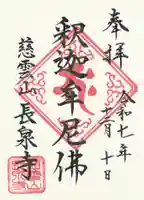 奉拝
令和七年
十二月十日
釈迦牟尼佛
慈雲山
長泉寺